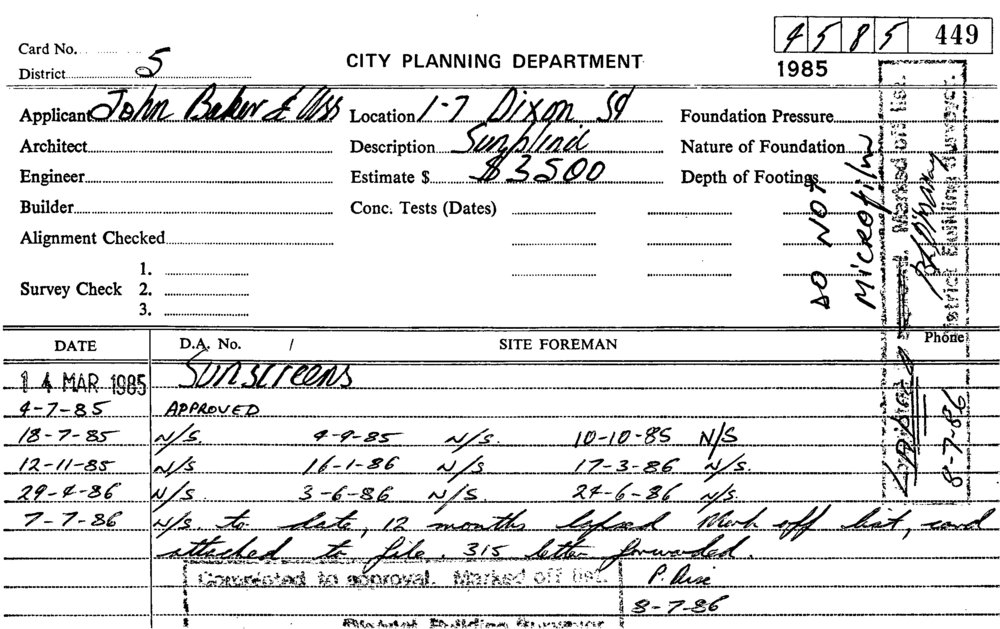 4585 449
Card No.
CITY PLANNING DEPARTMENT
District 5
1985
Applicant John Baker & Ass Location 1-7 Dixon St Foundation Pressure
Architect Description Sunblind Nature of Foundation
Engineer Estimate $ $3500 Depth of Footings
Builder Conc. Tests (Dates)
Alignment Checked
1.
Survey Check 2.
3.
DO NOT
MICROFILM
Marked off list.
District Building Surveyor.
LAPSED
8-7-86
DATE D.A. No. / SITE FOREMAN Phone
14 MAR 1985 Sunscreens
4-7-85 APPROVED
18-7-85 N/S. 4-9-85 N/S. 10-10-85 N/S
12-11-85 N/S 16-1-86 N/S 17-3-86 N/S.
29-4-86 N/S 3-6-86 N/S. 24-6-86 N/S.
7-7-86 N/S. to date, 12 months lapsed Mark off list, card
attached to file. 315 letter forwarded.
Completed to approval. Marked off list.
8-7-86
District Building Surveyor